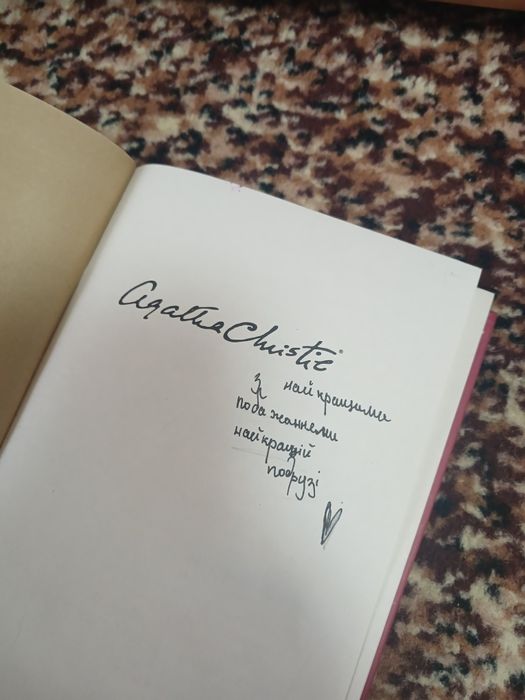 Agatha Christie
З найкращими
побажаннями
найкращій
подрузі